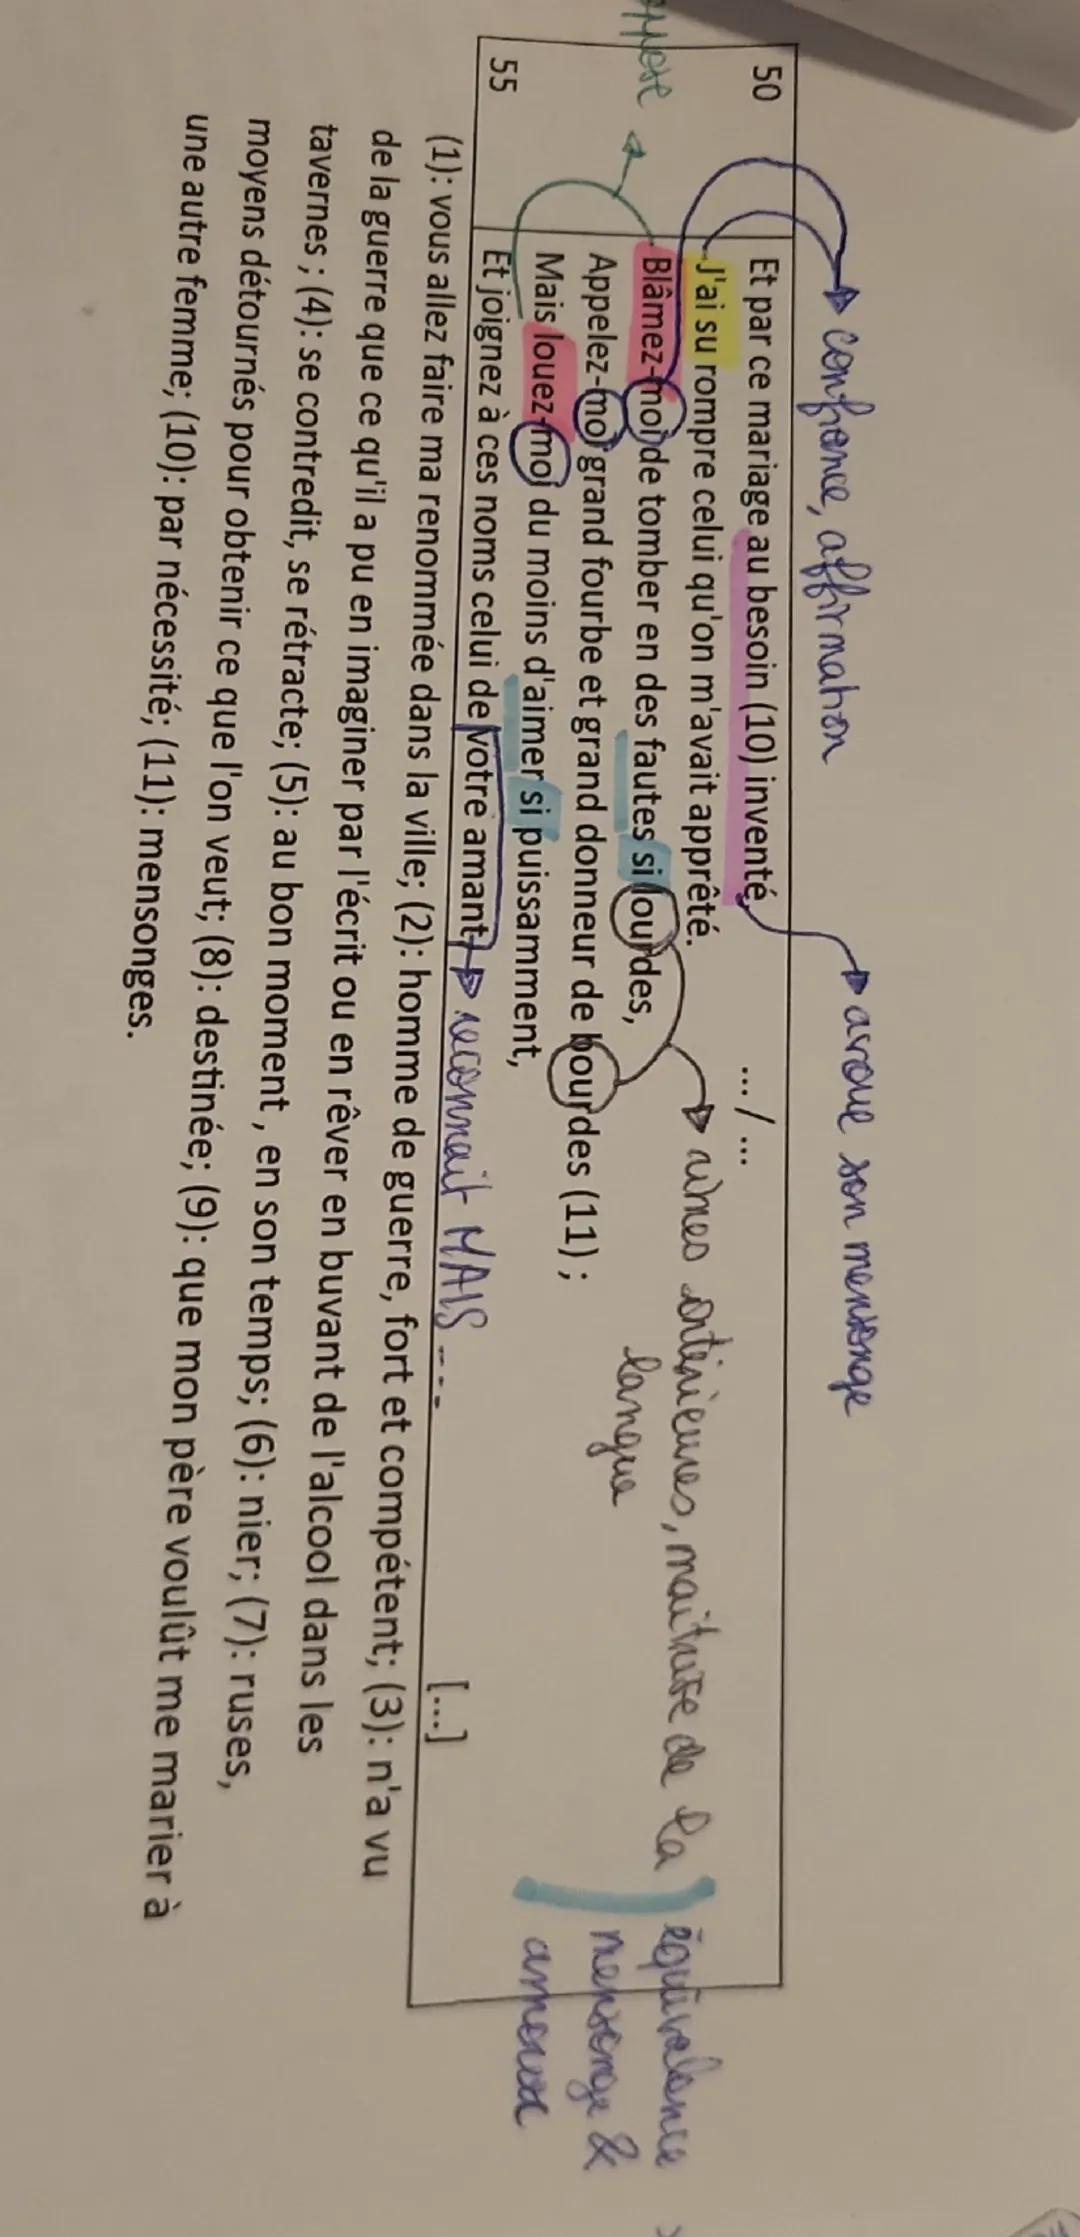 confiance, affirmation
avoue son mensonge
50
Et par ce mariage au besoin (10) inventé,
... / ...
J'ai su rompre celui qu'on m'avait apprêté.
Blâmez-moi de tomber en des fautes si lourdes,
rimes intérieures, maitrise de la
langue
Appelez-moi grand fourbe et grand donneur de bourdes (11) ;
équivalence
mensonge &
amour
55
Mais louez-moi du moins d'aimer si puissamment,
Et joignez à ces noms celui de votre amant,
reconnait MAIS ---
[...]
(1): vous allez faire ma renommée dans la ville; (2): homme de guerre, fort et compétent; (3): n'a vu
de la guerre que ce qu'il a pu en imaginer par l'écrit ou en rêver en buvant de l'alcool dans les
tavernes ; (4): se contredit, se rétracte; (5): au bon moment , en son temps; (6): nier; (7): ruses,
moyens détournés pour obtenir ce que l'on veut; (8): destinée; (9): que mon père voulût me marier à
une autre femme; (10): par nécessité; (11): mensonges.